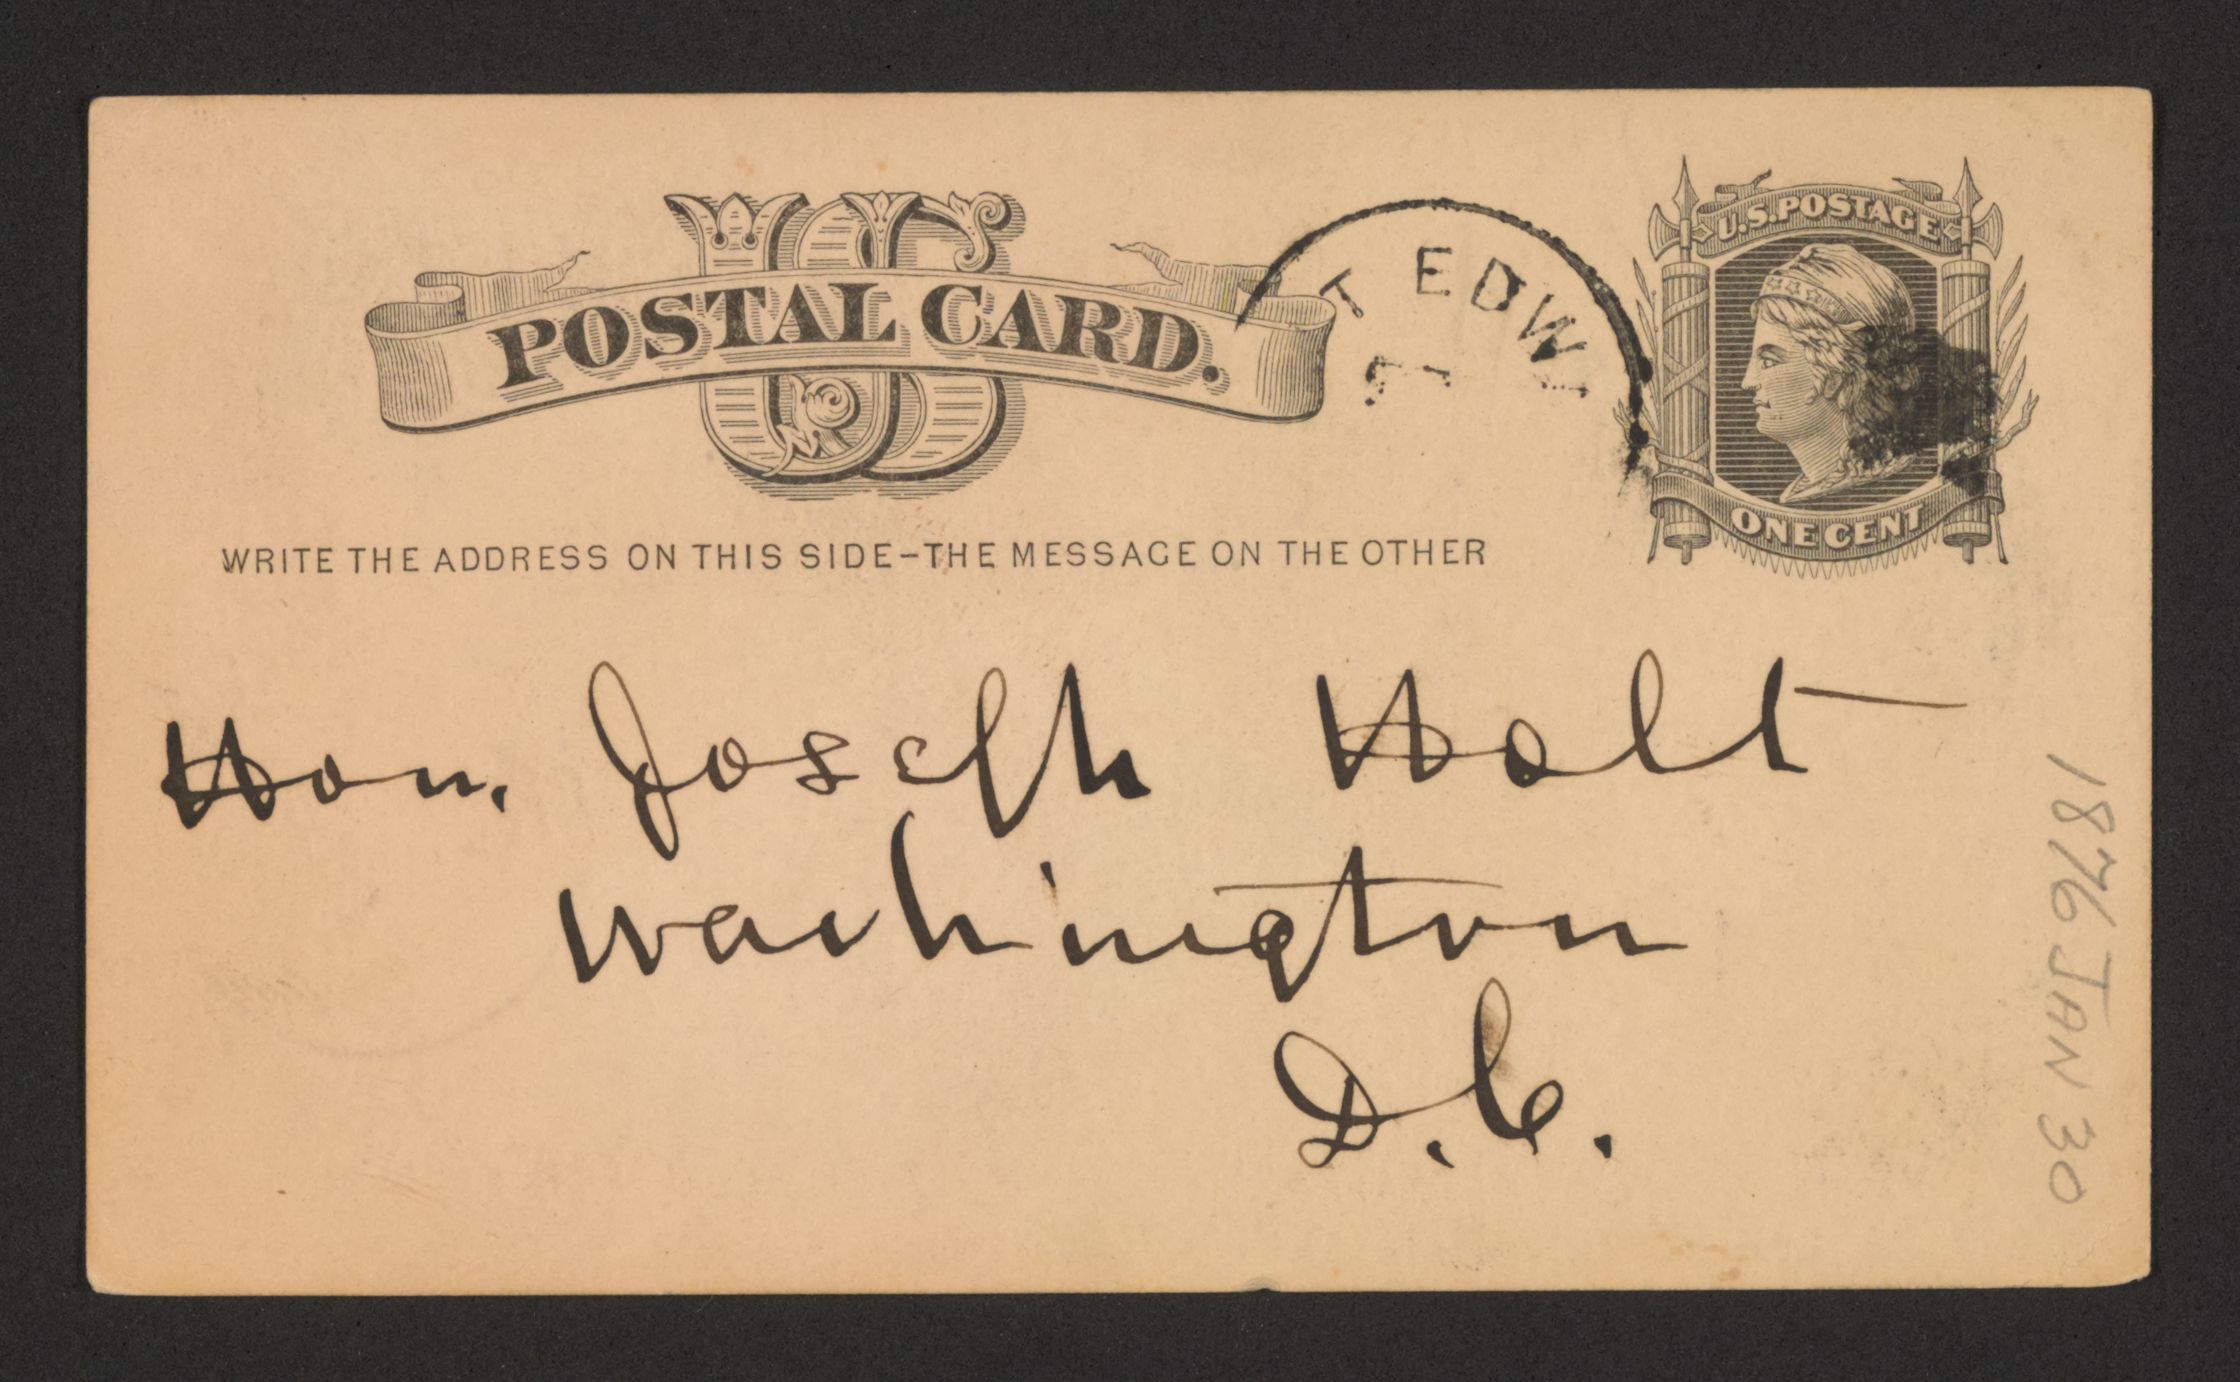 US
POSTAL CARD.
T EDW
U.S. POSTAGE
ONE CENT
WRITE THE ADDRESS ON THIS SIDE-THE MESSAGE ON THE OTHER
Hon. Joseph Holt
Washington
D.C.
1876 JAN 30